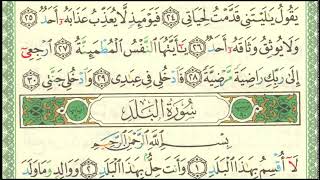 يَقُولُ يَٰلَيْتَنِى قَدَّمْتُ لِحَيَاتِى ٢٤ فَيَوْمَئِذٍ لَّا يُعَذِّبُ عَذَابَهُۥٓ أَحَدٌ ٢٥
وَلَا يُوثِقُ وَثَاقَهُۥٓ أَحَدٌ ٢٦ يَٰٓأَيَّتُهَا ٱلنَّفْسُ ٱلْمُطْمَئِنَّةُ ٢٧ ٱرْجِعِىٓ
إِلَىٰ رَبِّكِ رَاضِيَةً مَّرْضِيَّةً ٢٨ فَٱدْخُلِى فِى عِبَٰدِى ٢٩ وَٱدْخُلِى جَنَّتِى ٣٠
سُورَةُ ٱلْبَلَدِ
بِسْمِ ٱللَّهِ ٱلرَّحْمَٰنِ ٱلرَّحِيمِ
لَآ أُقْسِمُ بِهَٰذَا ٱلْبَلَدِ ١ وَأَنتَ حِلٌّۢ بِهَٰذَا ٱلْبَلَدِ ٢ وَوَالِدٍ وَمَا وَلَدَ